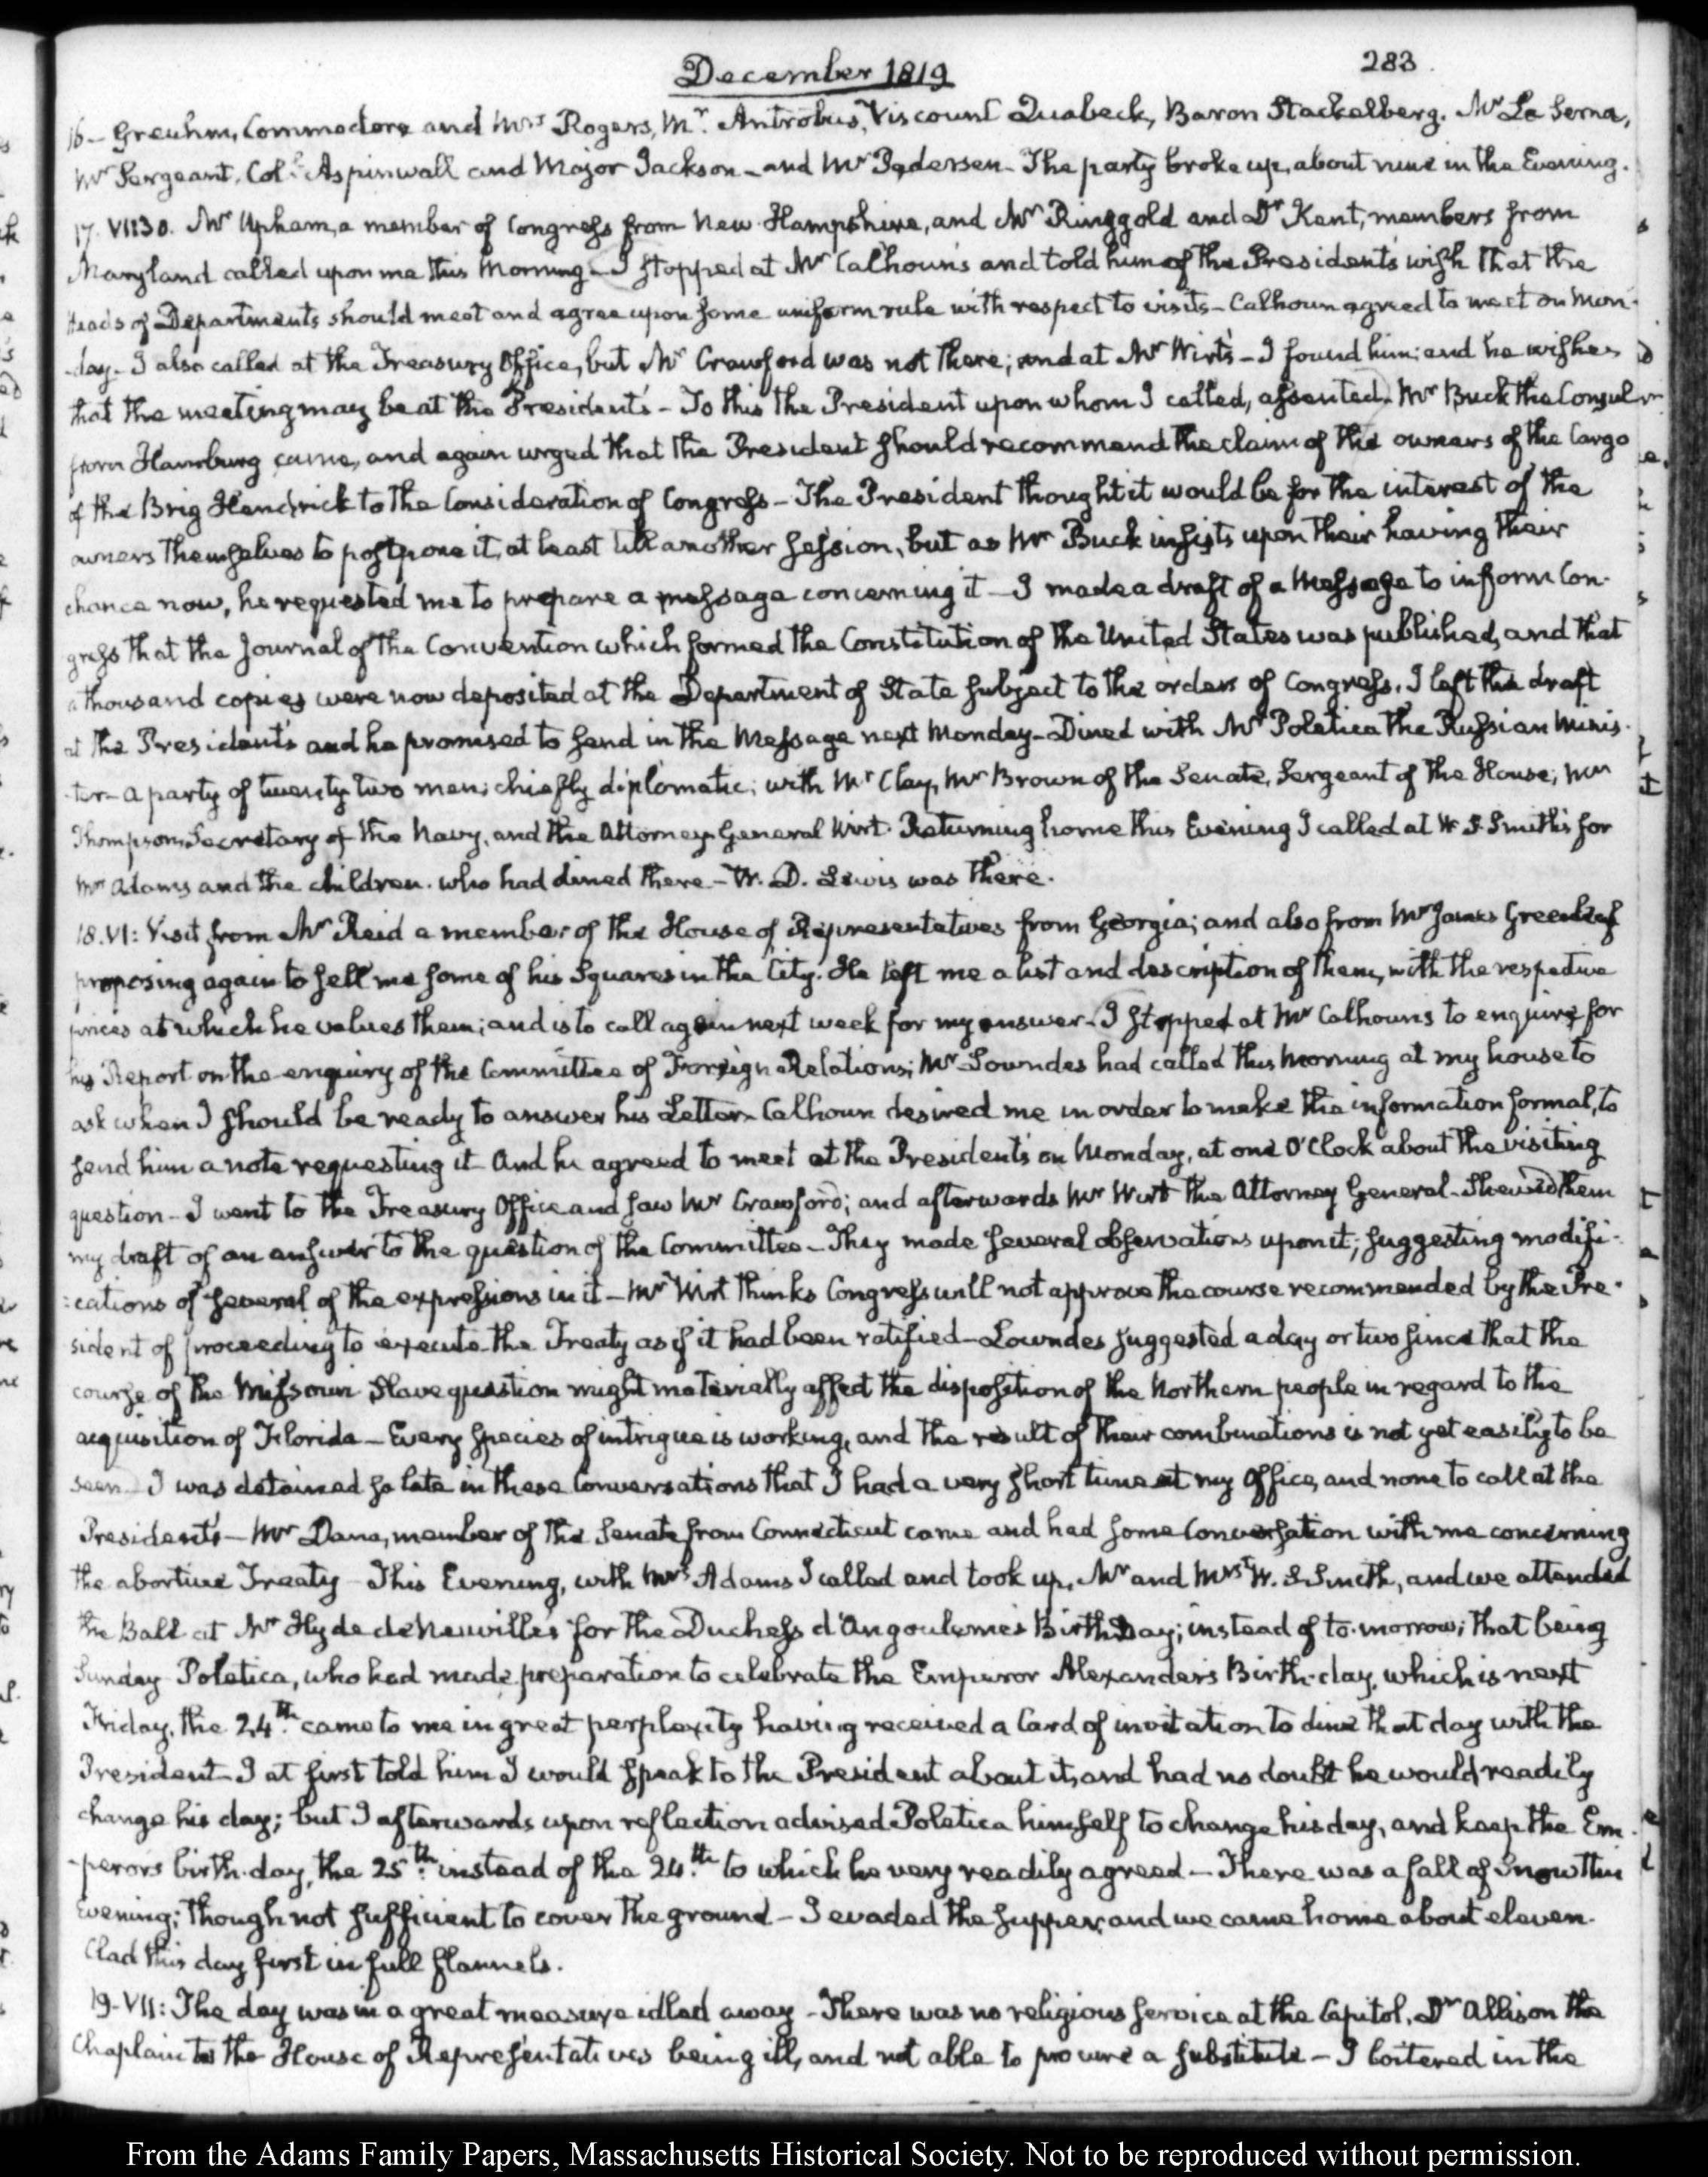 December 1819
283.
16- Greuhm, Commodore and Mrs Rogers, Mr. Antrobus, Viscount Quabeck, Baron Stackelberg. Mr La Serna,
Mr Sergeant, Coll. Aspinwall and Major Jackson – and Mr Pedersen – The party broke up, about nine in the Evening.
17. VII30. Mr Upham, a member of Congress from New-Hampshire, and Mr Ringgold and Dr Kent, members from
Maryland called upon me this Morning – I stopped at Mr Calhoun's and told him of the President's wish that the
Heads of Departments should meet and agree upon some uniform rule with respect to visits – Calhoun agreed to meet on Mon-
-day – I also called at the Treasury Office, but Mr Crawford was not there; and at Mr Wirt's – I found him; and he wishes
that the meeting may be at the President's – To this the President upon whom I called, assented. Mr Buck the Consul
from Hamburg came, and again urged that the President should recommend the claim of the owners of the Cargo
of the Brig Hendrick to the Consideration of Congress – The President thought it would be for the interest of the
owners themselves to postpone it, at least till another Session, but as Mr Buck insists upon their having their
chance now, he requested me to prepare a message concerning it – I made a draft of a Message to inform Con-
gress that the Journal of the Convention which formed the Constitution of the United States was published, and that
a thousand copies were now deposited at the Department of State subject to the orders of Congress. I left the draft
at the President's and he promised to send in the Message next Monday – Dined with Mr Poletica the Russian Minis-
-ter – a party of twenty two men; chiefly diplomatic; with Mr Clay, Mr Brown of the Senate, Sergeant of the House; Mr
Thompson Secretary of the Navy, and the Attorney General Wirt. Returning home this Evening I called at W. S. Smith's for
Mrs Adams and the children. who had dined there – W. D. Lewis was there.
18. VI: Visit from Mr Reid a member of the House of Representatives from Georgia; and also from Mr James Greenleaf
proposing again to sell me some of his Squares in the City. He left me a list and description of them, with the respective
prices at which he values them; and is to call again next week for my answer – I stopped at Mr Calhoun's to enquire for
his Report on the enquiry of the Committee of Foreign Relations; Mr Lowndes had called this Morning at my house to
ask when I should be ready to answer his Letter – Calhoun desired me in order to make the information formal, to
send him a note requesting it – And he agreed to meet at the President's on Monday, at one O'Clock about the visiting
question – I went to the Treasury Office and saw Mr Crawford; and afterwards Mr Wirt the Attorney General – Shewed them
my draft of an answer to the question of the Committee – They made several observations upon it; suggesting modifi-
:cations of several of the expressions in it – Mr Wirt thinks Congress will not approve the course recommended by the Pre-
sident of proceeding to execute the Treaty as if it had been ratified – Lowndes suggested a day or two since that the
course of the Missouri Slave question might materially affect the disposition of the Northern people in regard to the
acquisition of Florida – Every species of intrigue is working, and the result of their combinations is not yet easily to be
seen – I was detained so late in these Conversations that I had a very short time at my Office, and none to call at the
President's – Mr Dana, member of the Senate from Connecticut came and had some Conversation with me concerning
the abortive Treaty – This Evening, with Mrs Adams I called and took up, Mr and Mrs W. S. Smith, and we attended
the Ball at Mr Hyde de Neuville's for the Duchess d'Angouleme's Birth Day; instead of to-morrow; that being
Sunday – Poletica, who had made preparation to celebrate the Emperor Alexander's Birth-day, which is next
Friday, the 24th. came to me in great perplexity having received a Card of invitation to dine that day with the
President – I at first told him I would speak to the President about it, and had no doubt he would readily
change his day; but I afterwards upon reflection advised Poletica himself to change his day, and keep the Em-
-peror's birth-day, the 25th. instead of the 24th. to which he very readily agreed – There was a fall of Snow this
Evening; though not sufficient to cover the ground – I evaded the supper, and we came home about eleven.
Clad this day first in full flannels.
19- VII: The day was in a great measure idled away – There was no religious service at the Capitol, Dr Allison the
Chaplain to the House of Representatives being ill, and not able to procure a substitute – I loitered in the
From the Adams Family Papers, Massachusetts Historical Society. Not to be reproduced without permission.